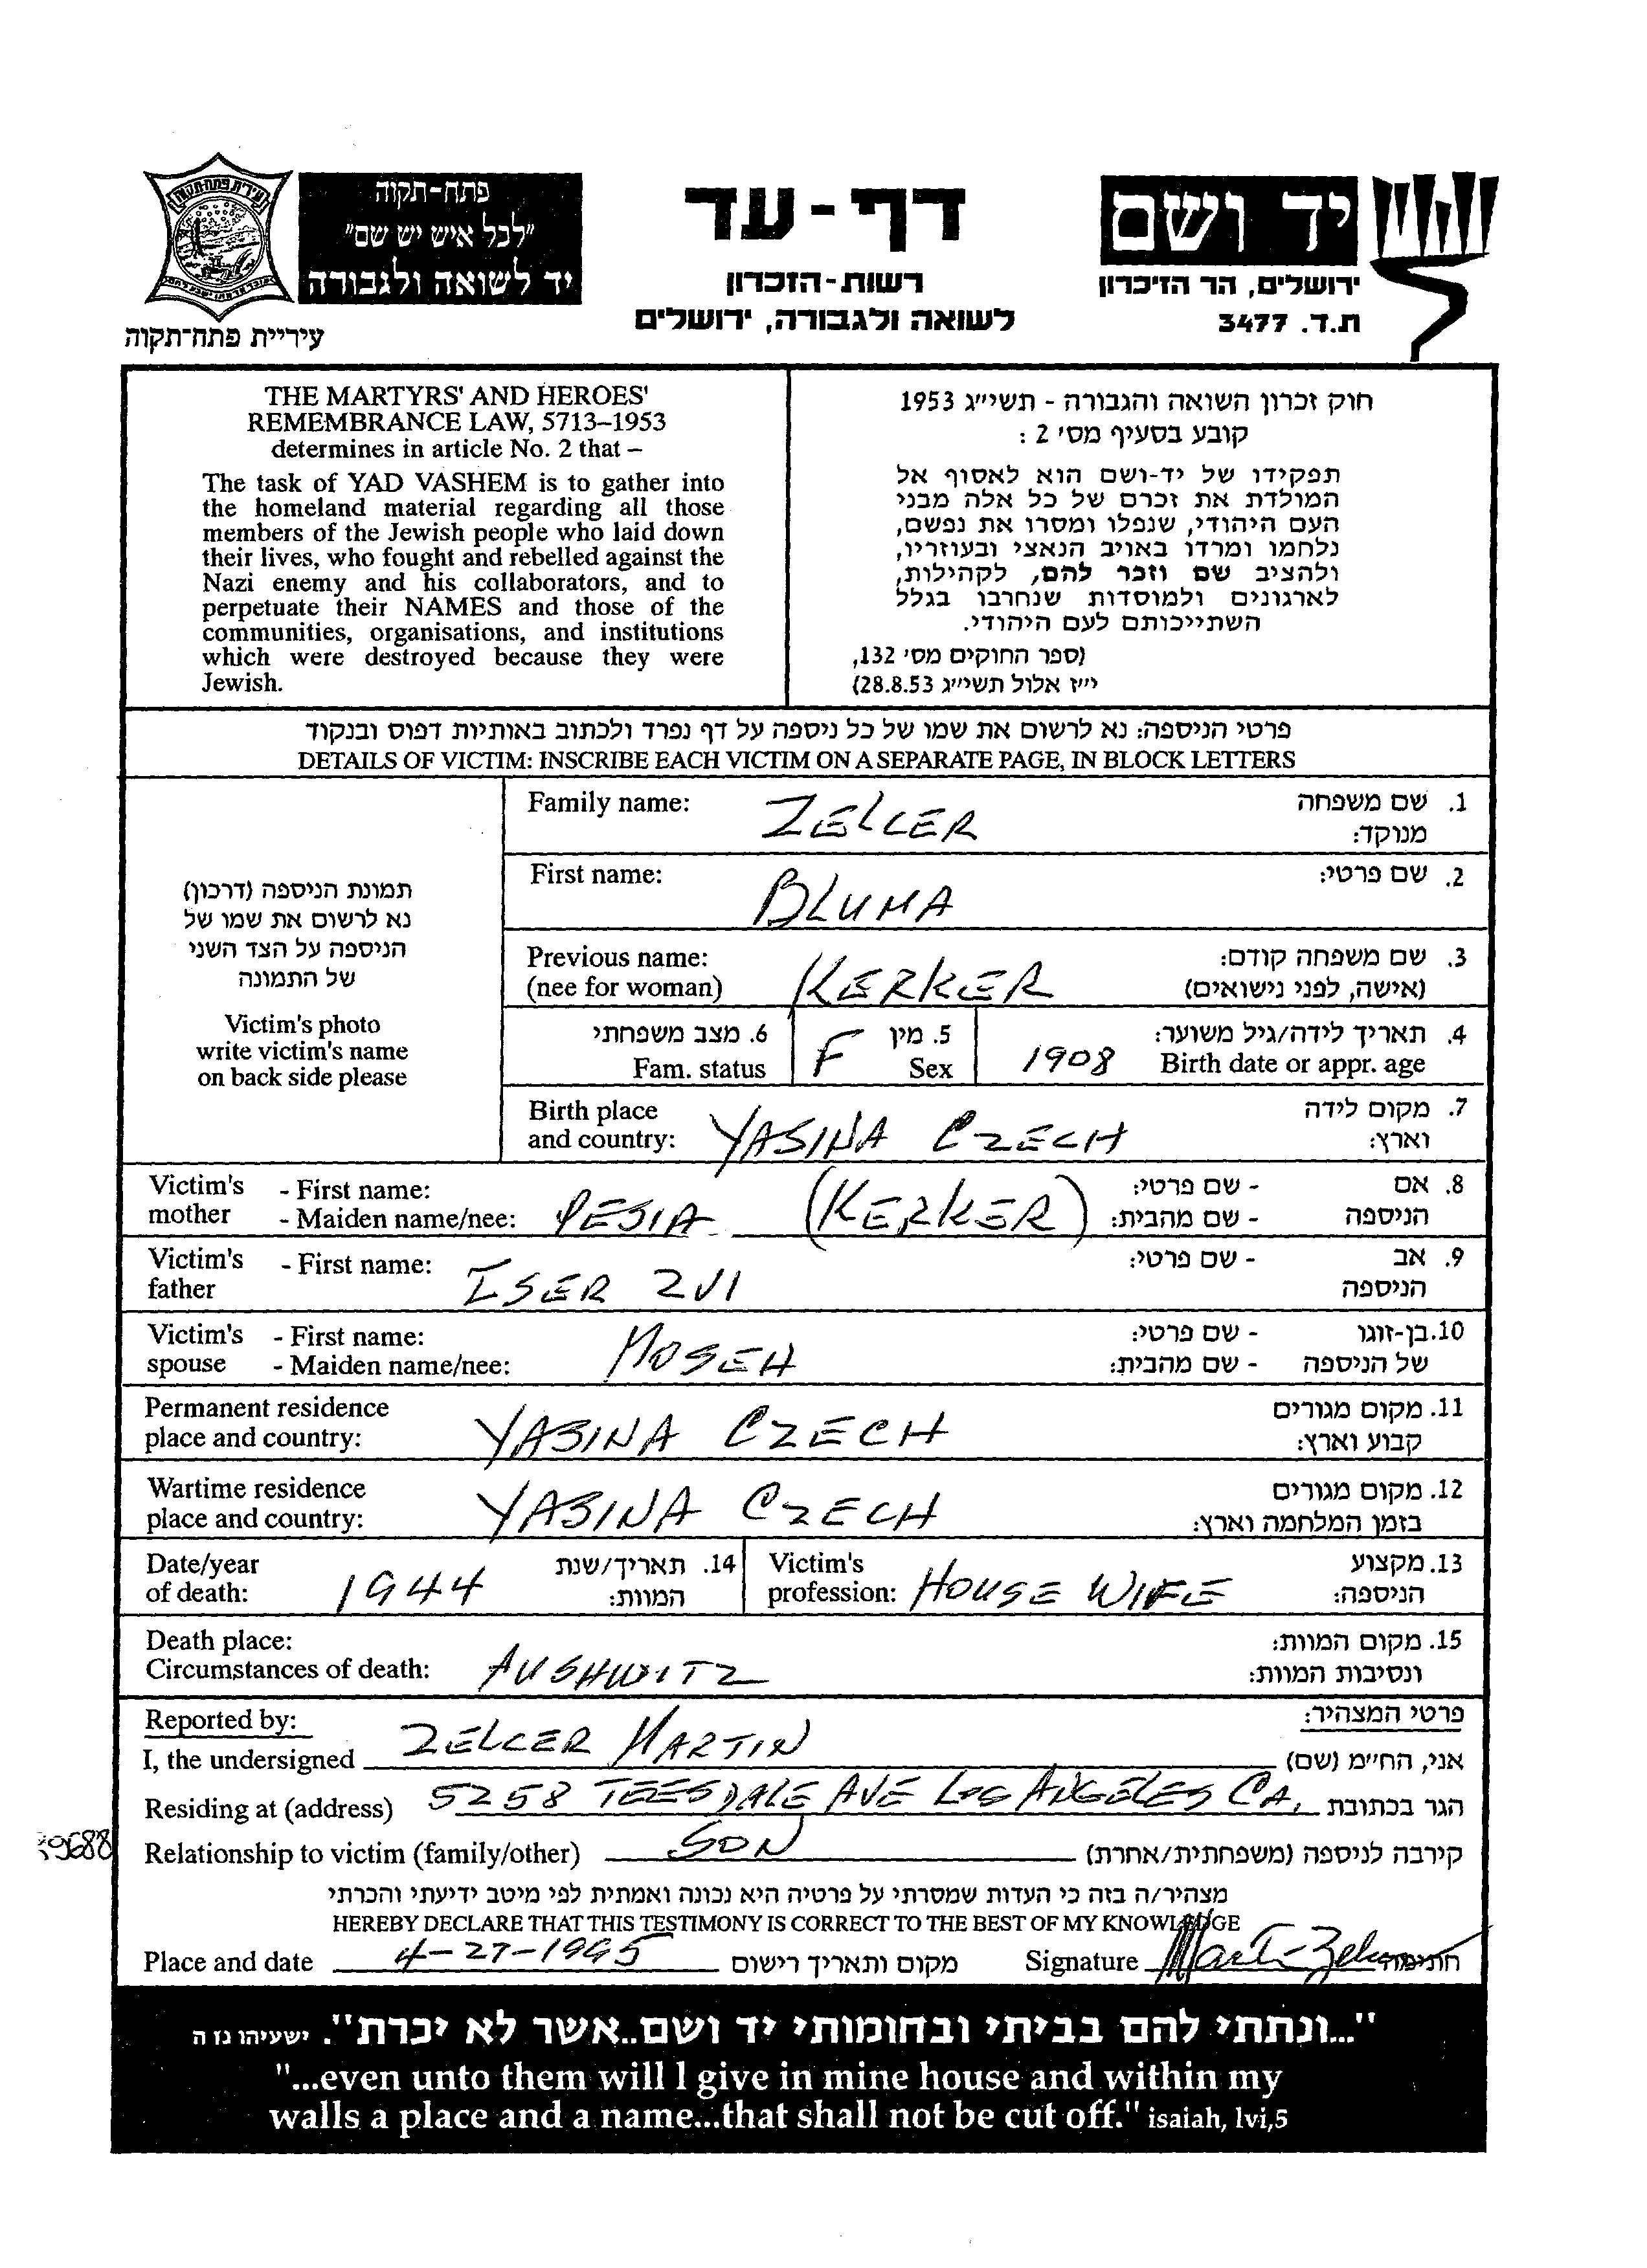 פתח-תקוה
"לכל איש יש שם"
יד לשואה ולגבורה
עיריית פתח-תקוה
דף-עד
רשות-הזכרון
לשואה ולגבורה, ירושלים
יד ושם
ירושלים, הר הזיכרון
ת.ד. 3477
THE MARTYRS' AND HEROES'
REMEMBRANCE LAW, 5713–1953
determines in article No. 2 that –
The task of YAD VASHEM is to gather into
the homeland material regarding all those
members of the Jewish people who laid down
their lives, who fought and rebelled against the
Nazi enemy and his collaborators, and to
perpetuate their NAMES and those of the
communities, organisations, and institutions
which were destroyed because they were
Jewish.
חוק זכרון השואה והגבורה - תשי״ג 1953
קובע בסעיף מס׳ 2 :
תפקידו של יד-ושם הוא לאסוף אל
המולדת את זכרם של כל אלה מבני
העם היהודי, שנפלו ומסרו את נפשם,
נלחמו ומרדו באויב הנאצי ובעוזריו,
ולהציב שם וזכר להם, לקהילות,
לארגונים ולמוסדות שנחרבו בגלל
השתייכותם לעם היהודי.
(ספר החוקים מס׳ 132,
י״ז אלול תשי״ג 28.8.53)
פרטי הניספה: נא לרשום את שמו של כל ניספה על דף נפרד ולכתוב באותיות דפוס ובנקוד
DETAILS OF VICTIM: INSCRIBE EACH VICTIM ON A SEPARATE PAGE, IN BLOCK LETTERS
תמונת הניספה (דרכון)
נא לרשום את שמו של
הניספה על הצד השני
של התמונה
Victim's photo
write victim's name
on back side please
Family name: ZELCER 1. שם משפחה
מנוקד:
First name: BLUMA 2. שם פרטי:
Previous name: KERKER 3. שם משפחה קודם:
(nee for woman) (אישה, לפני נישואים)
6. מצב משפחתי F 5. מין 1908 4. תאריך לידה/גיל משוער:
Fam. status Sex Birth date or appr. age
Birth place YASINA CZECH 7. מקום לידה
and country: וארץ:
Victim's - First name: PESIA (KERKER) - שם פרטי: 8. אם
mother - Maiden name/nee: - שם מהבית: הניספה
Victim's - First name: ISER ZVI - שם פרטי: 9. אב
father הניספה
Victim's - First name: MOSEH - שם פרטי: 10. בן-זוגו
spouse - Maiden name/nee: - שם מהבית: של הניספה
Permanent residence YASINA CZECH 11. מקום מגורים
place and country: קבוע וארץ:
Wartime residence YASINA CZECH 12. מקום מגורים
place and country: בזמן המלחמה וארץ:
Date/year 1944 14. תאריך/שנת Victim's HOUSE WIFE 13. מקצוע
of death: המוות: profession: הניספה:
Death place: AUSHWITZ 15. מקום המוות:
Circumstances of death: ונסיבות המוות:
Reported by: פרטי המצהיר:
I, the undersigned ZELCER MARTIN אני, החי״מ (שם)
Residing at (address) 5258 TEESDALE AVE LOS ANGELES CA. הגר בכתובת
Relationship to victim (family/other) SON קירבה לניספה (משפחתית/אחרת)
מצהיר/ה בזה כי העדות שמסרתי על פרטיה היא נכונה ואמתית לפי מיטב ידיעתי והכרתי
HEREBY DECLARE THAT THIS TESTIMONY IS CORRECT TO THE BEST OF MY KNOWLEDGE
Place and date 4-27-1995 מקום ותאריך רישום Signature חתימה
"...ונתתי להם בביתי ובחומותי יד ושם..אשר לא יכרת". ישעיהו נז ה
"...even unto them will I give in mine house and within my
walls a place and a name...that shall not be cut off." isaiah, lvi,5